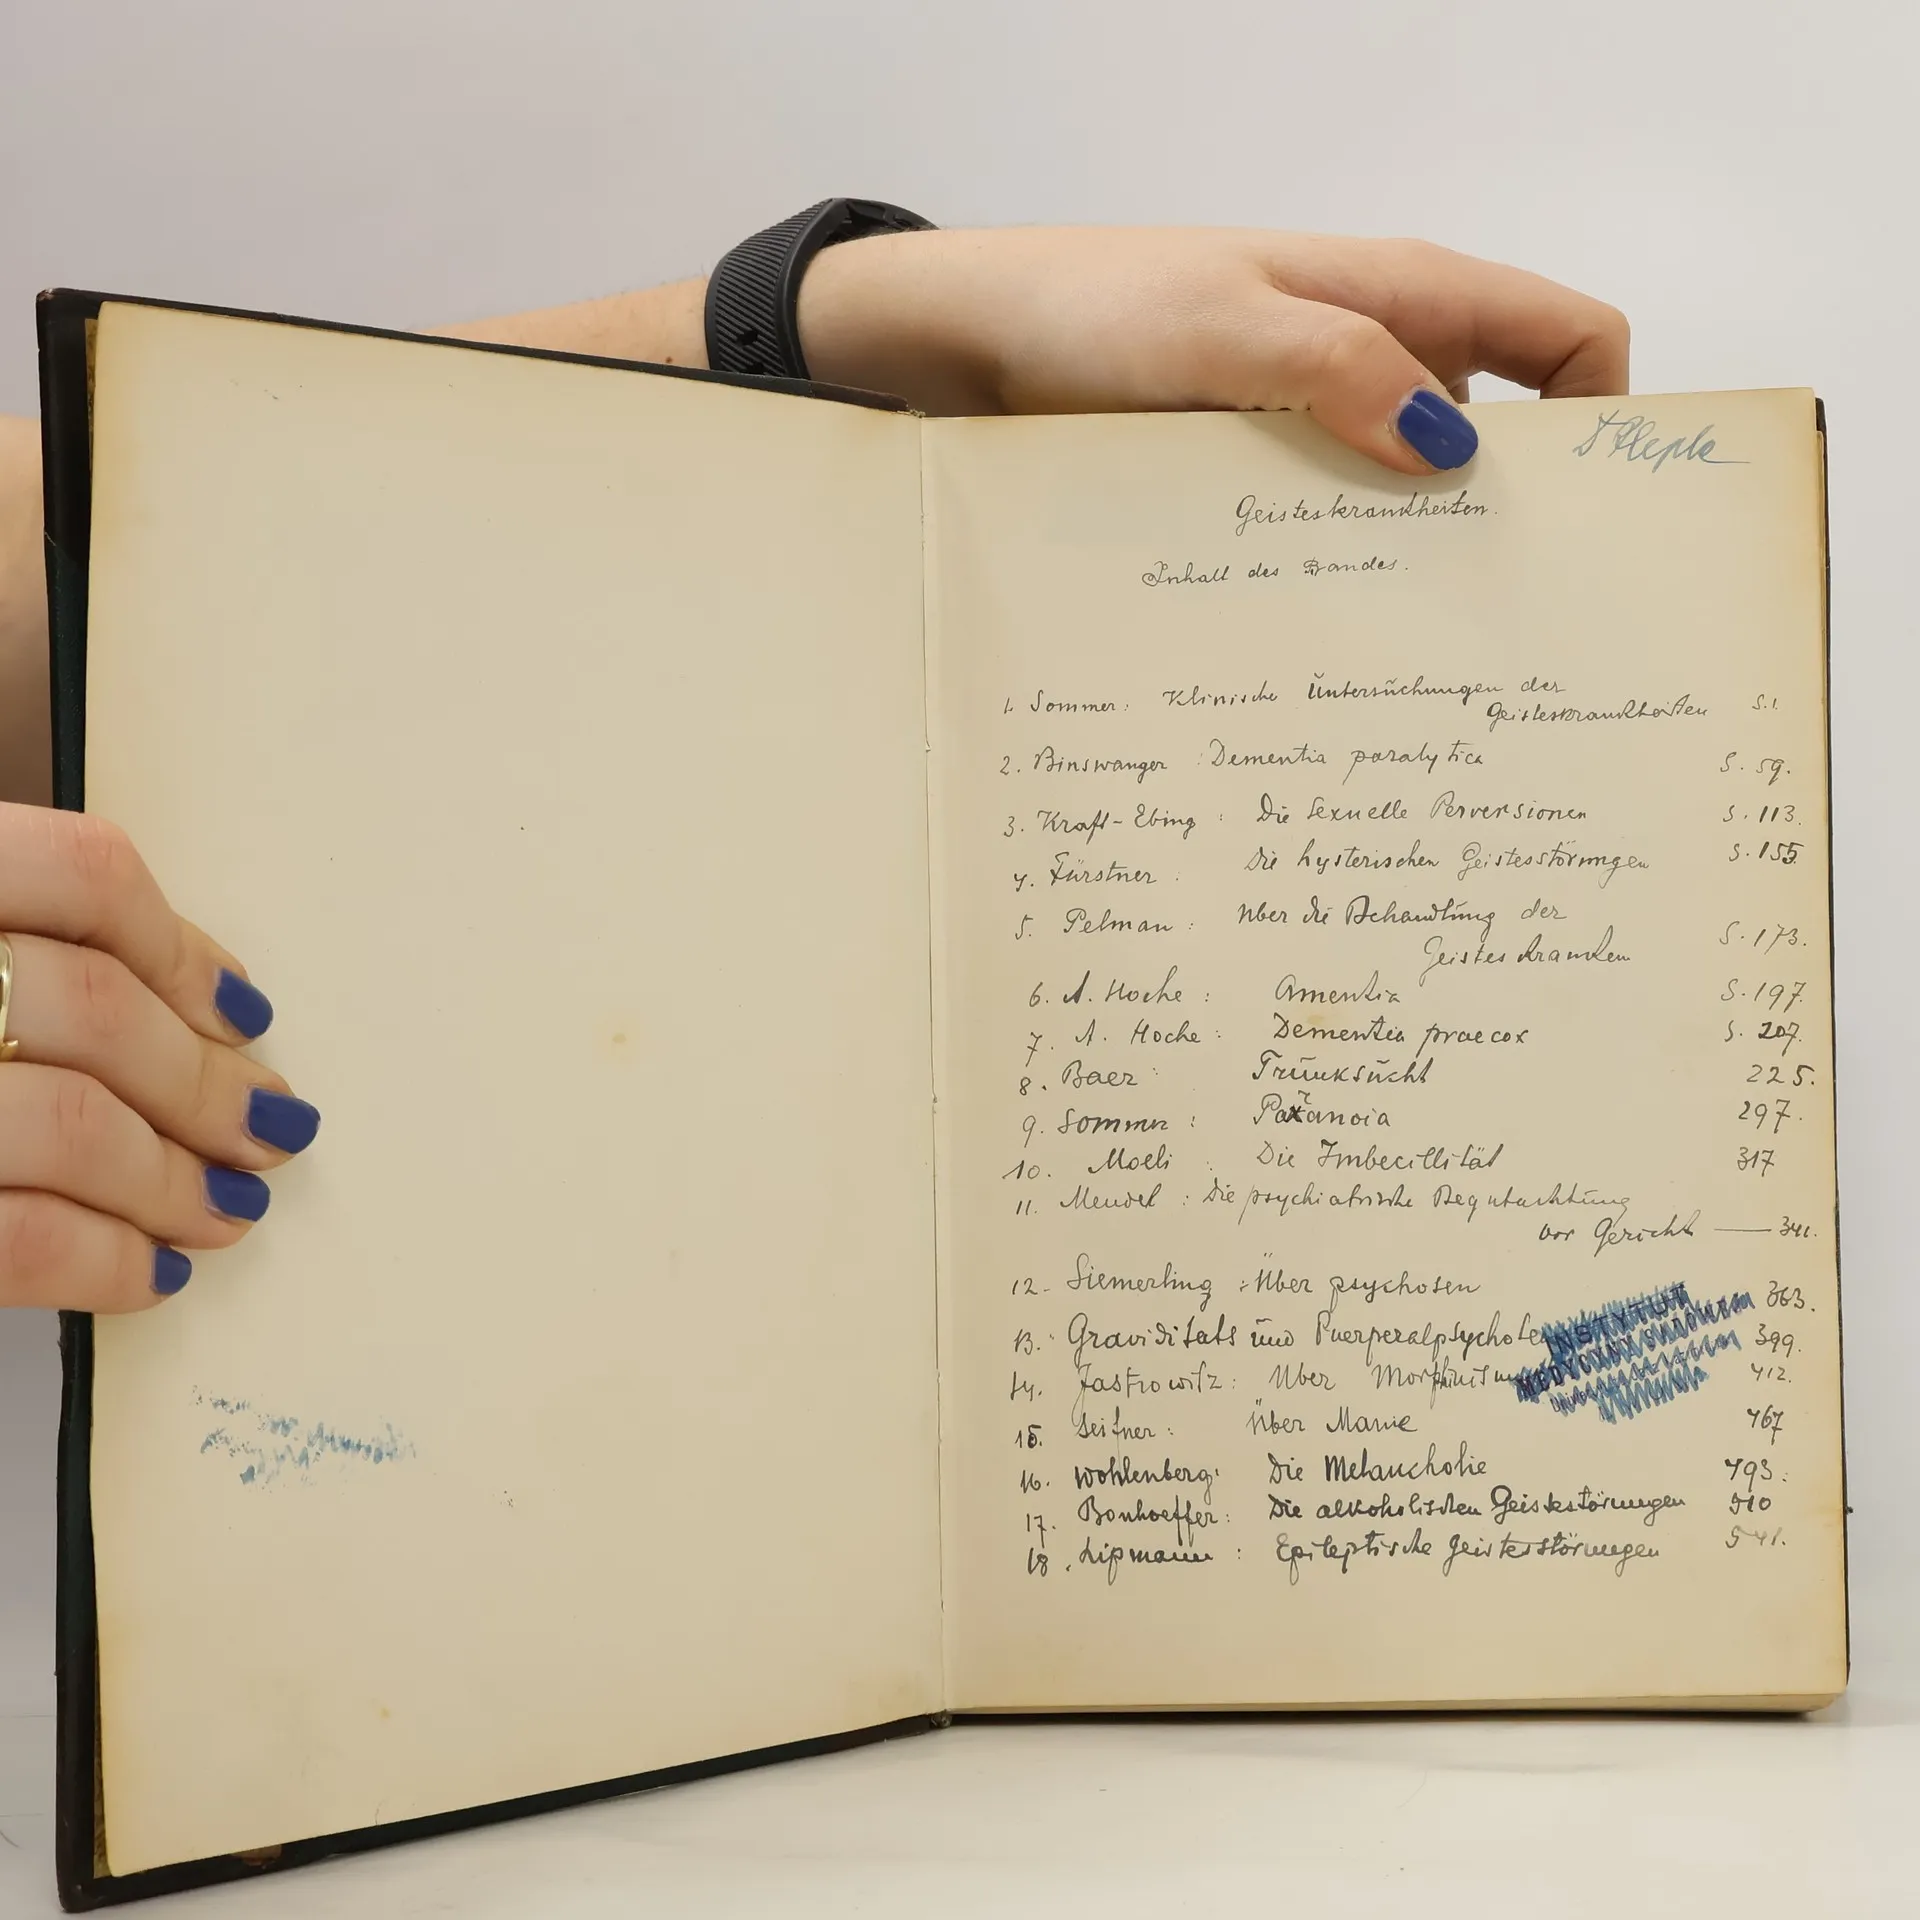 Geisteskrankheiten.
Inhalt des Bandes.
1. Sommer: Klinische Untersuchungen der
Geisteskrankheiten S. 1.
2. Binswanger : Dementia paralytica S. 59.
3. Kraft-Ebing : Die Sexuelle Perversionen S. 113.
4. Fürstner : Die hysterischen Geistesstörungen S. 155
5. Pelman : Uber die Behandlung der
Geisteskranken S. 173.
6. A. Hoche : Amentia S. 197.
7. A. Hoche : Dementia praecox S. 207.
8. Baer : Trunksucht 225.
9. Sommer : Paranoia 297.
10. Moeli : Die Imbecillität 317
11. Mendel : Die psychiatrische Begutachtung
vor Gericht — 341.
12. Siemerling : Über psychosen 363.
13. Graviditats und Puerperalpsychosen 399.
14. Jastrowitz : Uber Morphinismus 412.
15. Seifner : Über Manie 467
16. Wohlenberg : Die Melancholie 493.
17. Bonhoeffer : Die alkoholischen Geistestörungen 510
18. Lipmann : Epileptische Geistesstörungen 541.
INSTYTUT
MEDYCYNY SĄDOWEJ